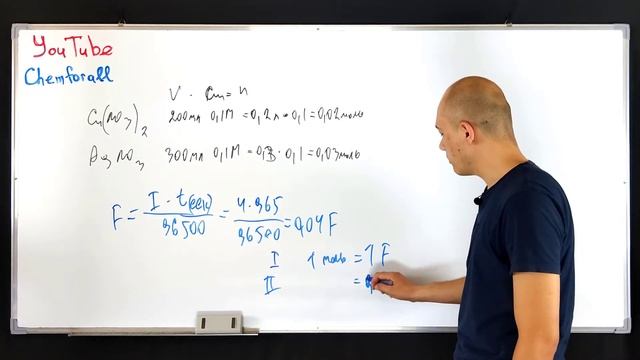 YouTube
Chemforall
V · Cm = n
Cu(NO3)2 200мл 0,1М = 0,2л · 0,1 = 0,02моль
AgNO3 300мл 0,1М = 0,3 · 0,1 = 0,03моль
F = I · t(сек) / 96500 = 4 · 965 / 96500 = 0,04 F
I 1 моль = 1 F
II =